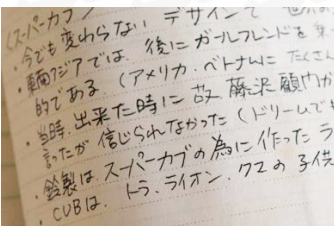 (スーパーカブ)
・今でも変わらない デザインで
・東南アジアでは、後にガールフレンドを乗
的である。(アメリカ・ベトナムに たくさん
・当時、出来た時に 故 藤沢顧問が
言ったが 信じられなかった (ドリームで
・鈴製は スーパーカブの為に作った ラ
・CUBは、トラ、ライオン、クマの子供